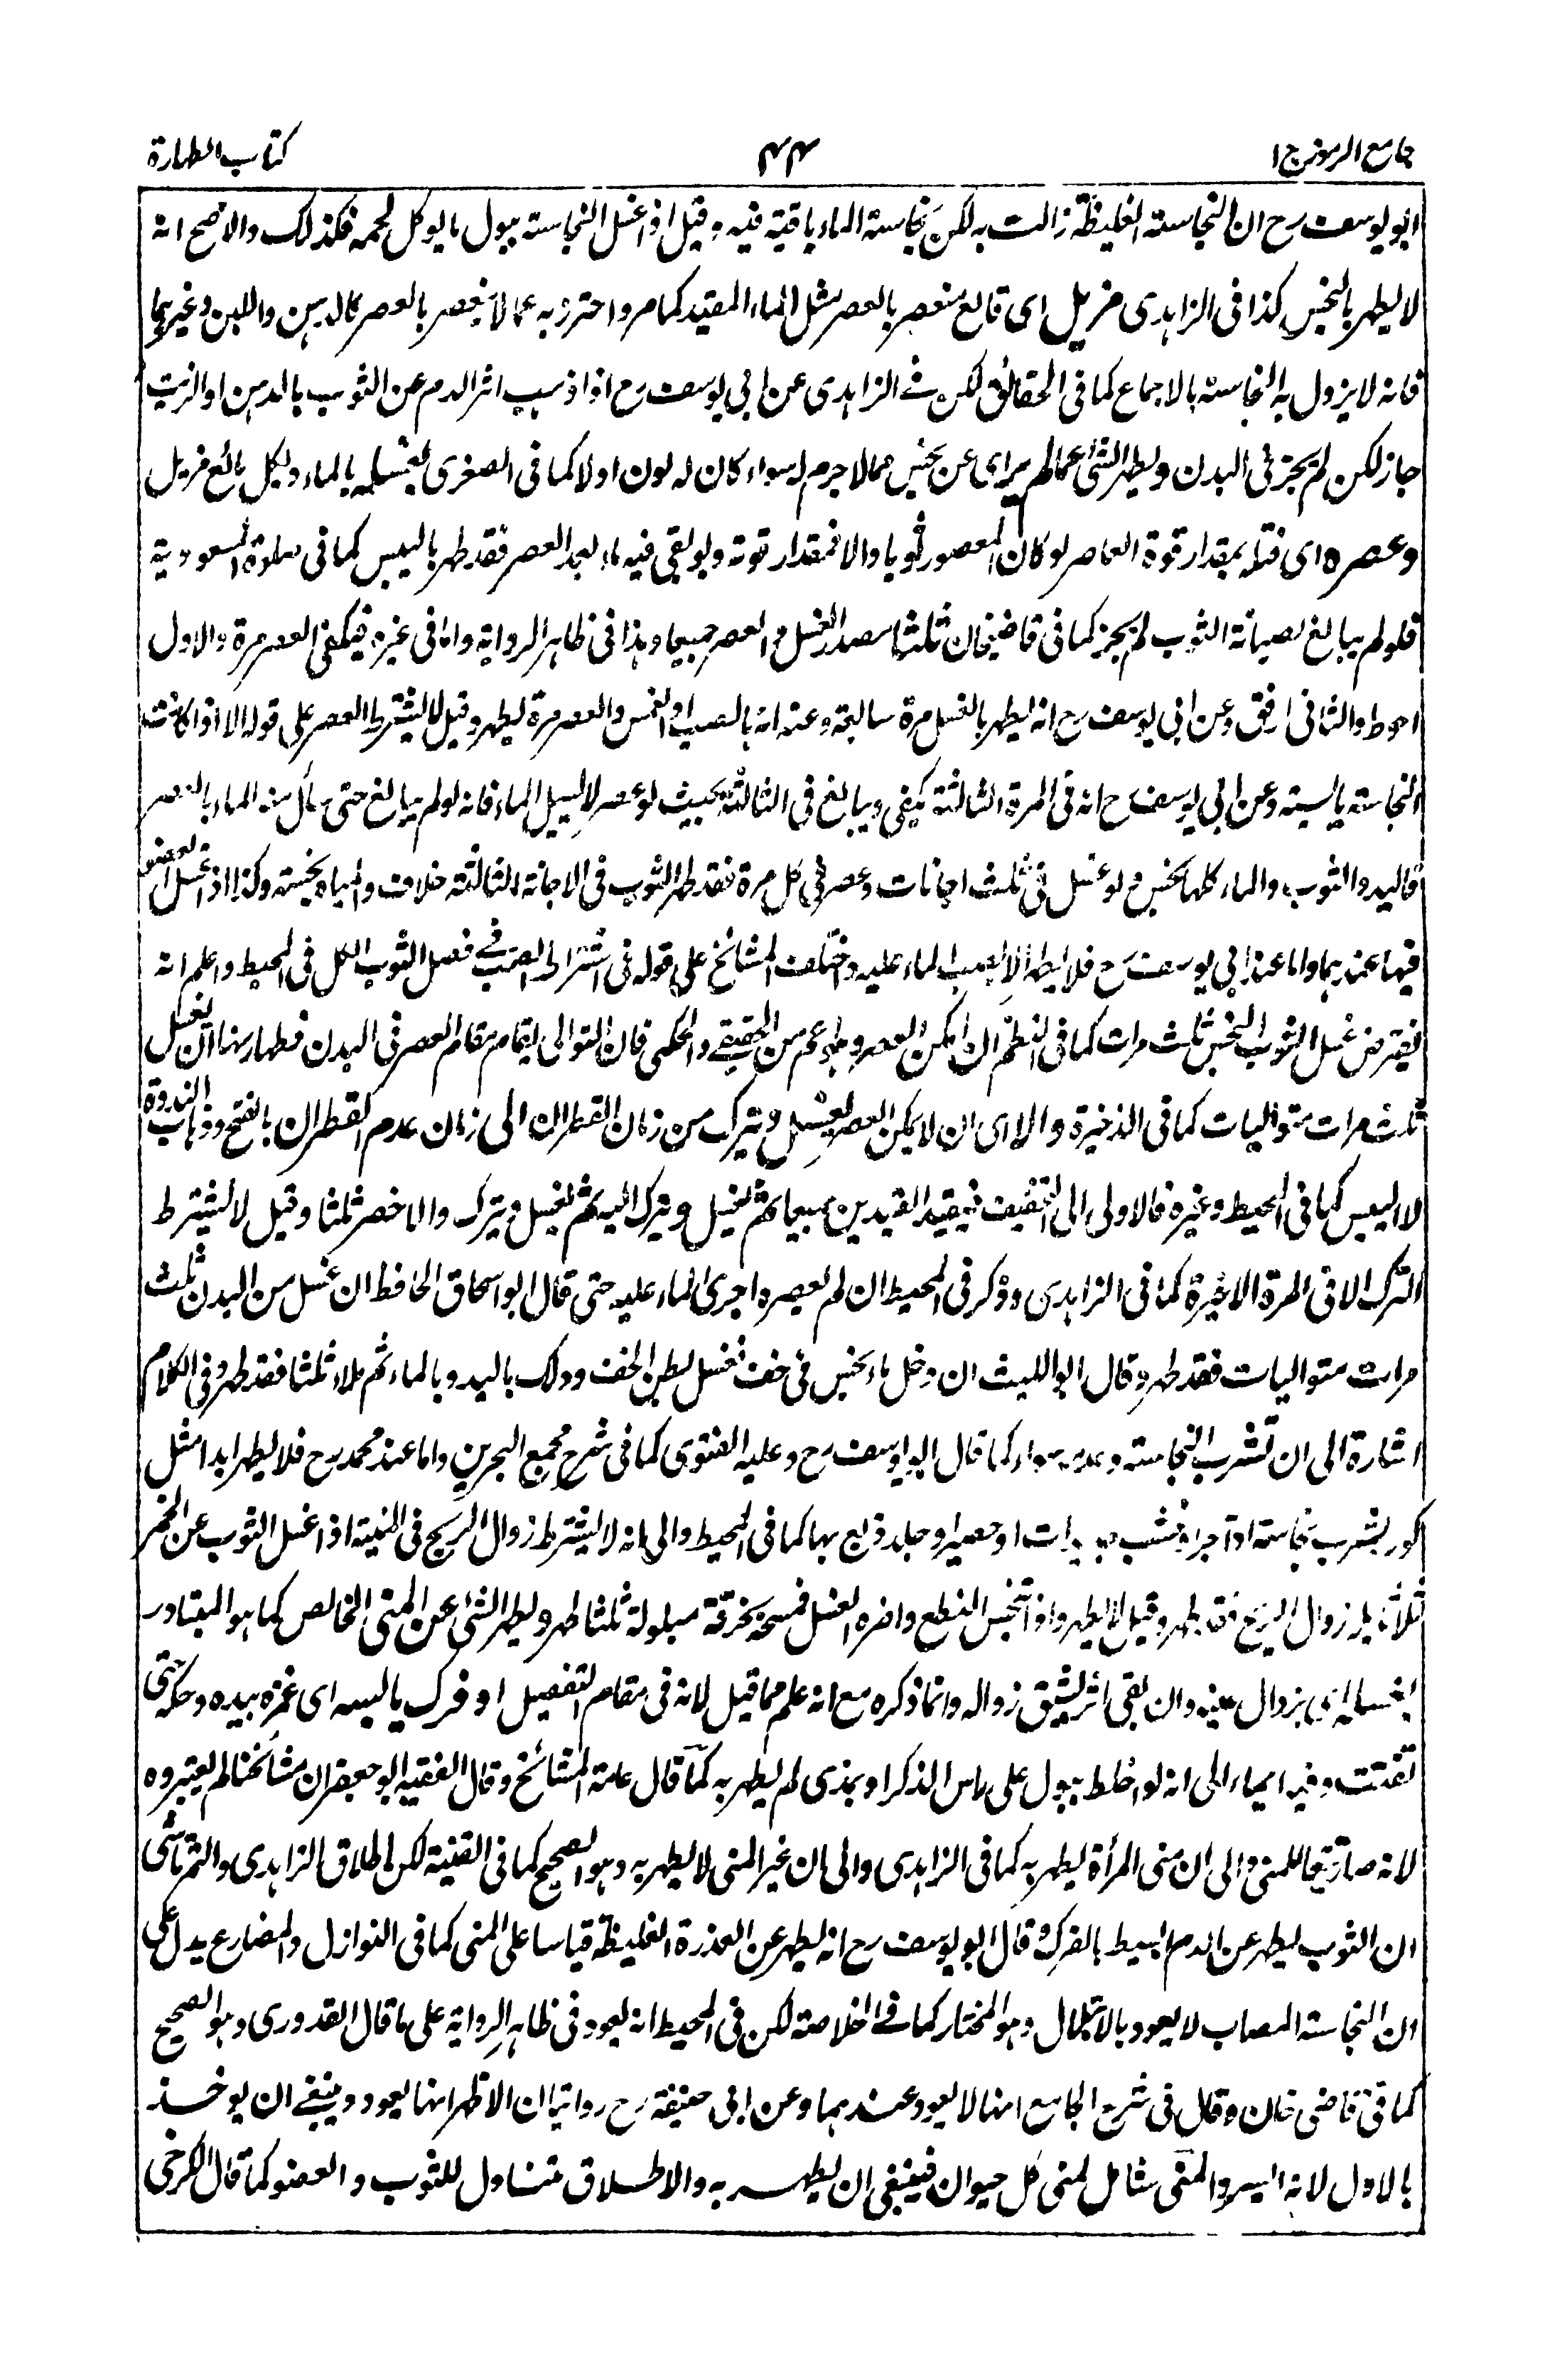 جامع الرموز ج ١
٤٤
كتاب الطهارة
ابو يوسف رح ان النجاسة الغليظة زالت به لكن نجاسة الماء باقية فيه وقيل اذا غسل النجاسة ببول ما يوكل لحمه فكذلك والاصح انه
لا يطهر بالنجس كذا فى الزاهدى مزيل اى قالع منعصر بالعصر مثل الماء المقيد كما مر واحترز به عما لا ينعصر بالعصر كالدهن واللبن وغيرهما
فانه لا يزول به النجاسة بالاجماع كما فى الحقائق لكن فى الزاهدى عن ابى يوسف رح اذا ذهب اثر الدم عن الثوب بالدهن او الزيت
جاز لكن لم يجز فى البدن ويطهر الشئ عما لم ير اى عن نجس مما لا جرم له سواء كان له لون او لا كما فى الصغرى بغسله بالماء وبكل مائع مزيل
وعصره اى فتله بمقدار قوة العاصر لو كان المعصور قويا والا فمقدار قوته ولو بقى فيه ماء بعد العصر فقد طهر باليبس كما فى صلوة المسعودية
فلو لم يبالغ لصيانة الثوب لم يجز كما فى قاضيخان ثلثا مصدر الغسل والعصر جميعا وهذا فى ظاهر الرواية واما فى غيره فيكفى العصر مرة والاول
احوط والثانى ارفق وعن ابى يوسف رح انه يطهر بالغسل مرة سابغة وعنه انه بالصب او الغمس والعصر مرة يطهر وقيل لا يشترط العصر على قوله الا اذا كانت
النجاسة يابسة وعن ابى يوسف رح انه فى المرة الثالثة يكفى ويبالغ فى الثالثة بحيث لو عصر لا يسيل الماء فانه لو لم يبالغ حتى سال منه الماء بالعصر
فاليد والثوب والماء كلها نجس ولو غسل فى ثلث اجانات وعصر فى كل مرة فقد طهر الثوب فى الاجانة الثالثة خلافت والمياه نجسة وكذا اذا غسل العضو
فيها عندهما واما عند ابى يوسف رح فلا يطهر الا بصب الماء عليه واختلف المشائخ على قوله فى اشتراط الصب فى فصل الثوب الكل فى المحيط واعلم انه
يفترض غسل الثوب النجس ثلث مرات كما فى النظم ان امكن العصر وهو اعم من الحقيقى والحكمى فان التوالى يقام مقام العصر فى البدن فطهارتها ان يغسل
ثلث مرات متواليات كما فى الذخيرة والا اى ان لا يمكن العصر يغسل ويترك من زمان القطران الى زمان عدم القطران بالفتح وذهاب الندوة
لا اليبس كما فى المحيط وغيره فالاولى الى التجفيف فيقيد القيدين جميعا ثم يغسل ويترك اليه ثم يغسل ويترك والاخصر ثلثا وقيل لا يشترط
الترك الا فى المرة الاخيرة كما فى الزاهدى وذكر فى المحيط ان لم يعصره اجرى الماء عليه حتى قال ابو اسحاق الحافظ ان غسل من البدن ثلث
مرات متواليات فقد طهر وقال ابو الليث ان دخل ماء نجس فى خف فغسل بطن الخف ودلك باليد وبالماء ثم ملاء ثلثا فقد طهر وفى الكلام
اشارة الى ان تشرب النجاسة وعدمه سواء كما قال ابو يوسف رح وعليه الفتوى كما فى شرح مجمع البحرين واما عند محمد رح فلا يطهر ابدا مثل
كوز تشرب نجاسة او آجر او خشب او حصير او جلد دبغ بها كما فى المحيط والى انه لا يشترط زوال الريح فى المنية اذا غسل الثوب عن الخمر
ثلاثا بلا زوال الريح فقد طهر وقيل لا يطهر واذا تنجس النطع واضره الغسل فمسحه بخرقة مبلولة ثلثا طهر ويطهر الشئ عن المنى الخالص كما هو المتبادر
بغسله اى بزوال عينه وان بقى اثر يشق زواله وانما ذكره مع انه علم مما قيل لانه فى مقام التفصيل او فرك يابسه اى غمزه بيده وحكه حتى
تفتت وفيه ايماء الى انه لو اختلط ببول على راس الذكر او بمذى لم يطهر به كما قال عامة المشائخ وقال الفقيه ابو جعفر ان مشائخنا لم يعتبروه
لانه صار تبعا للمنى والى ان منى المرأة يطهر به كما فى الزاهدى والى ان غير المنى لا يطهر به وهو الصحيح كما فى القنية لكن اطلاق الزاهدى والتمرتاشى
ان الثوب يطهر عن الدم البسيط بالفرك وقال ابو يوسف رح انه يطهر عن العذرة الغليظة قياسا على المنى كما فى النوازل والمضارع يدل على
ان النجاسة المصاب لا يعود بالابتلال وهو المختار كما فى الخلاصة لكن فى المحيط انه يعود فى ظاهر الرواية على ما قال القدورى وهو الصحيح
كما فى قاضى خان وقال فى شرح الجامع انها لا يعود عندهما وعن ابى حنيفة رح روايتان الاظهر انها يعود وينبغى ان يوخذ
بالاول لانه ايسر والمنى شامل لمنى كل حيوان فينبغى ان يطهر به والاطلاق متناول للثوب والعضو كما قال الكرخى